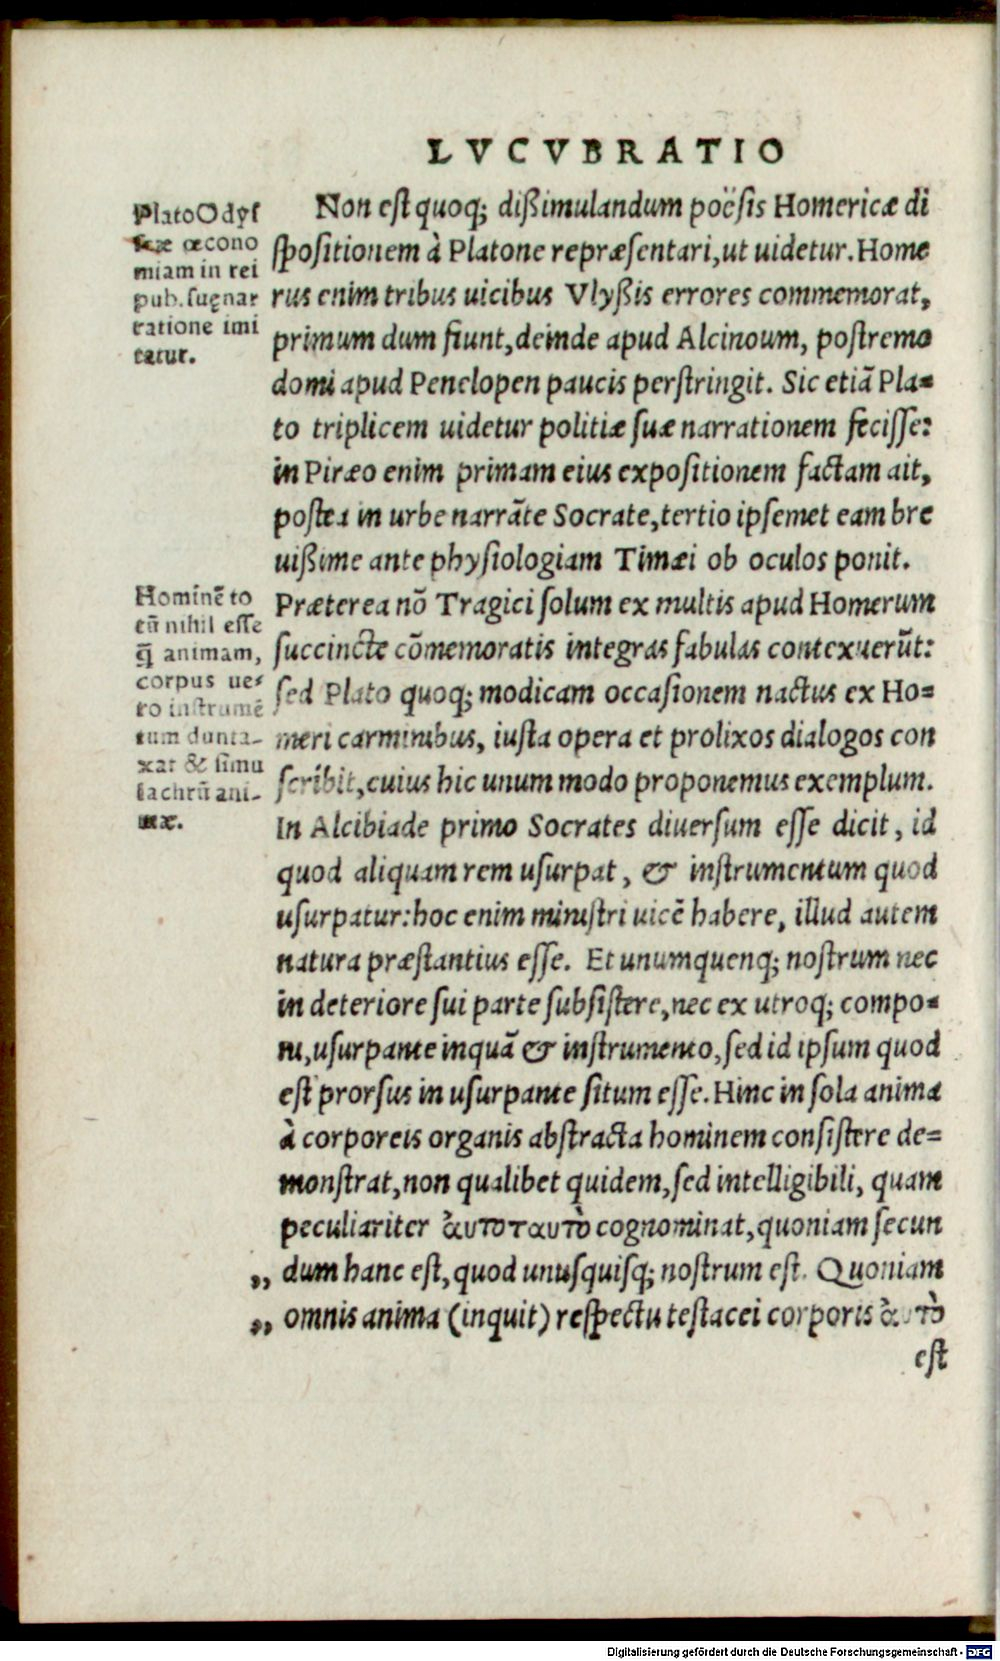 LVCVBRATIO
Plato Odyſ
ſeæ œcono
miam in rei
pub. ſuę nar
ratione imi
tatur.
Non eſt quoq; dißimulandum poëſis Homericæ di
ſpoſitionem à Platone repræſentari, ut uidetur. Home
rus enim tribus uicibus Vlyßis errores commemorat,
primum dum fiunt, deinde apud Alcinoum, poſtremo
domi apud Penelopen paucis perſtringit. Sic etiā Pla=
to triplicem uidetur politiæ ſuæ narrationem feciſſe:
in Piræo enim primam eius expoſitionem factam ait,
poſtea in urbe narrāte Socrate, tertio ipſemet eam bre
uißime ante phyſiologiam Timæi ob oculos ponit.
Hominē to
tū nihil eſſe
q̄ animam,
corpus ue⸗
ro inſtrumē
tum dunta-
xat & ſimu
lachrū ani-
mæ.
Præterea nō Tragici ſolum ex multis apud Homerum
ſuccincte cōmemoratis integras fabulas contexuerūt:
ſed Plato quoq; modicam occaſionem nactus ex Ho=
meri carminibus, iuſta opera et prolixos dialogos con
ſcribit, cuius hic unum modo proponemus exemplum.
In Alcibiade primo Socrates diuerſum eſſe dicit, id
quod aliquam rem uſurpat, & inſtrumentum quod
uſurpatur: hoc enim miniſtri uicē habere, illud autem
natura præſtantius eſſe. Et unumquenq; noſtrum nec
in deteriore ſui parte ſubſiſtere, nec ex utroq; compo=
ni, uſurpante inquā & inſtrumento, ſed id ipſum quod
eſt prorſus in uſurpante ſitum eſſe. Hinc in ſola anima
à corporeis organis abſtracta hominem conſiſtere de=
monſtrat, non qualibet quidem, ſed intelligibili, quam
peculiariter ἀυτοταυτὸ cognominat, quoniam ſecun
„ dum hanc eſt, quod unuſquiſq; noſtrum eſt. Quoniam
„ omnis anima (inquit) reſpectu teſtacei corporis ἀυτὸ
eſt
Digitalisierung gefördert durch die Deutsche Forschungsgemeinschaft - DFG